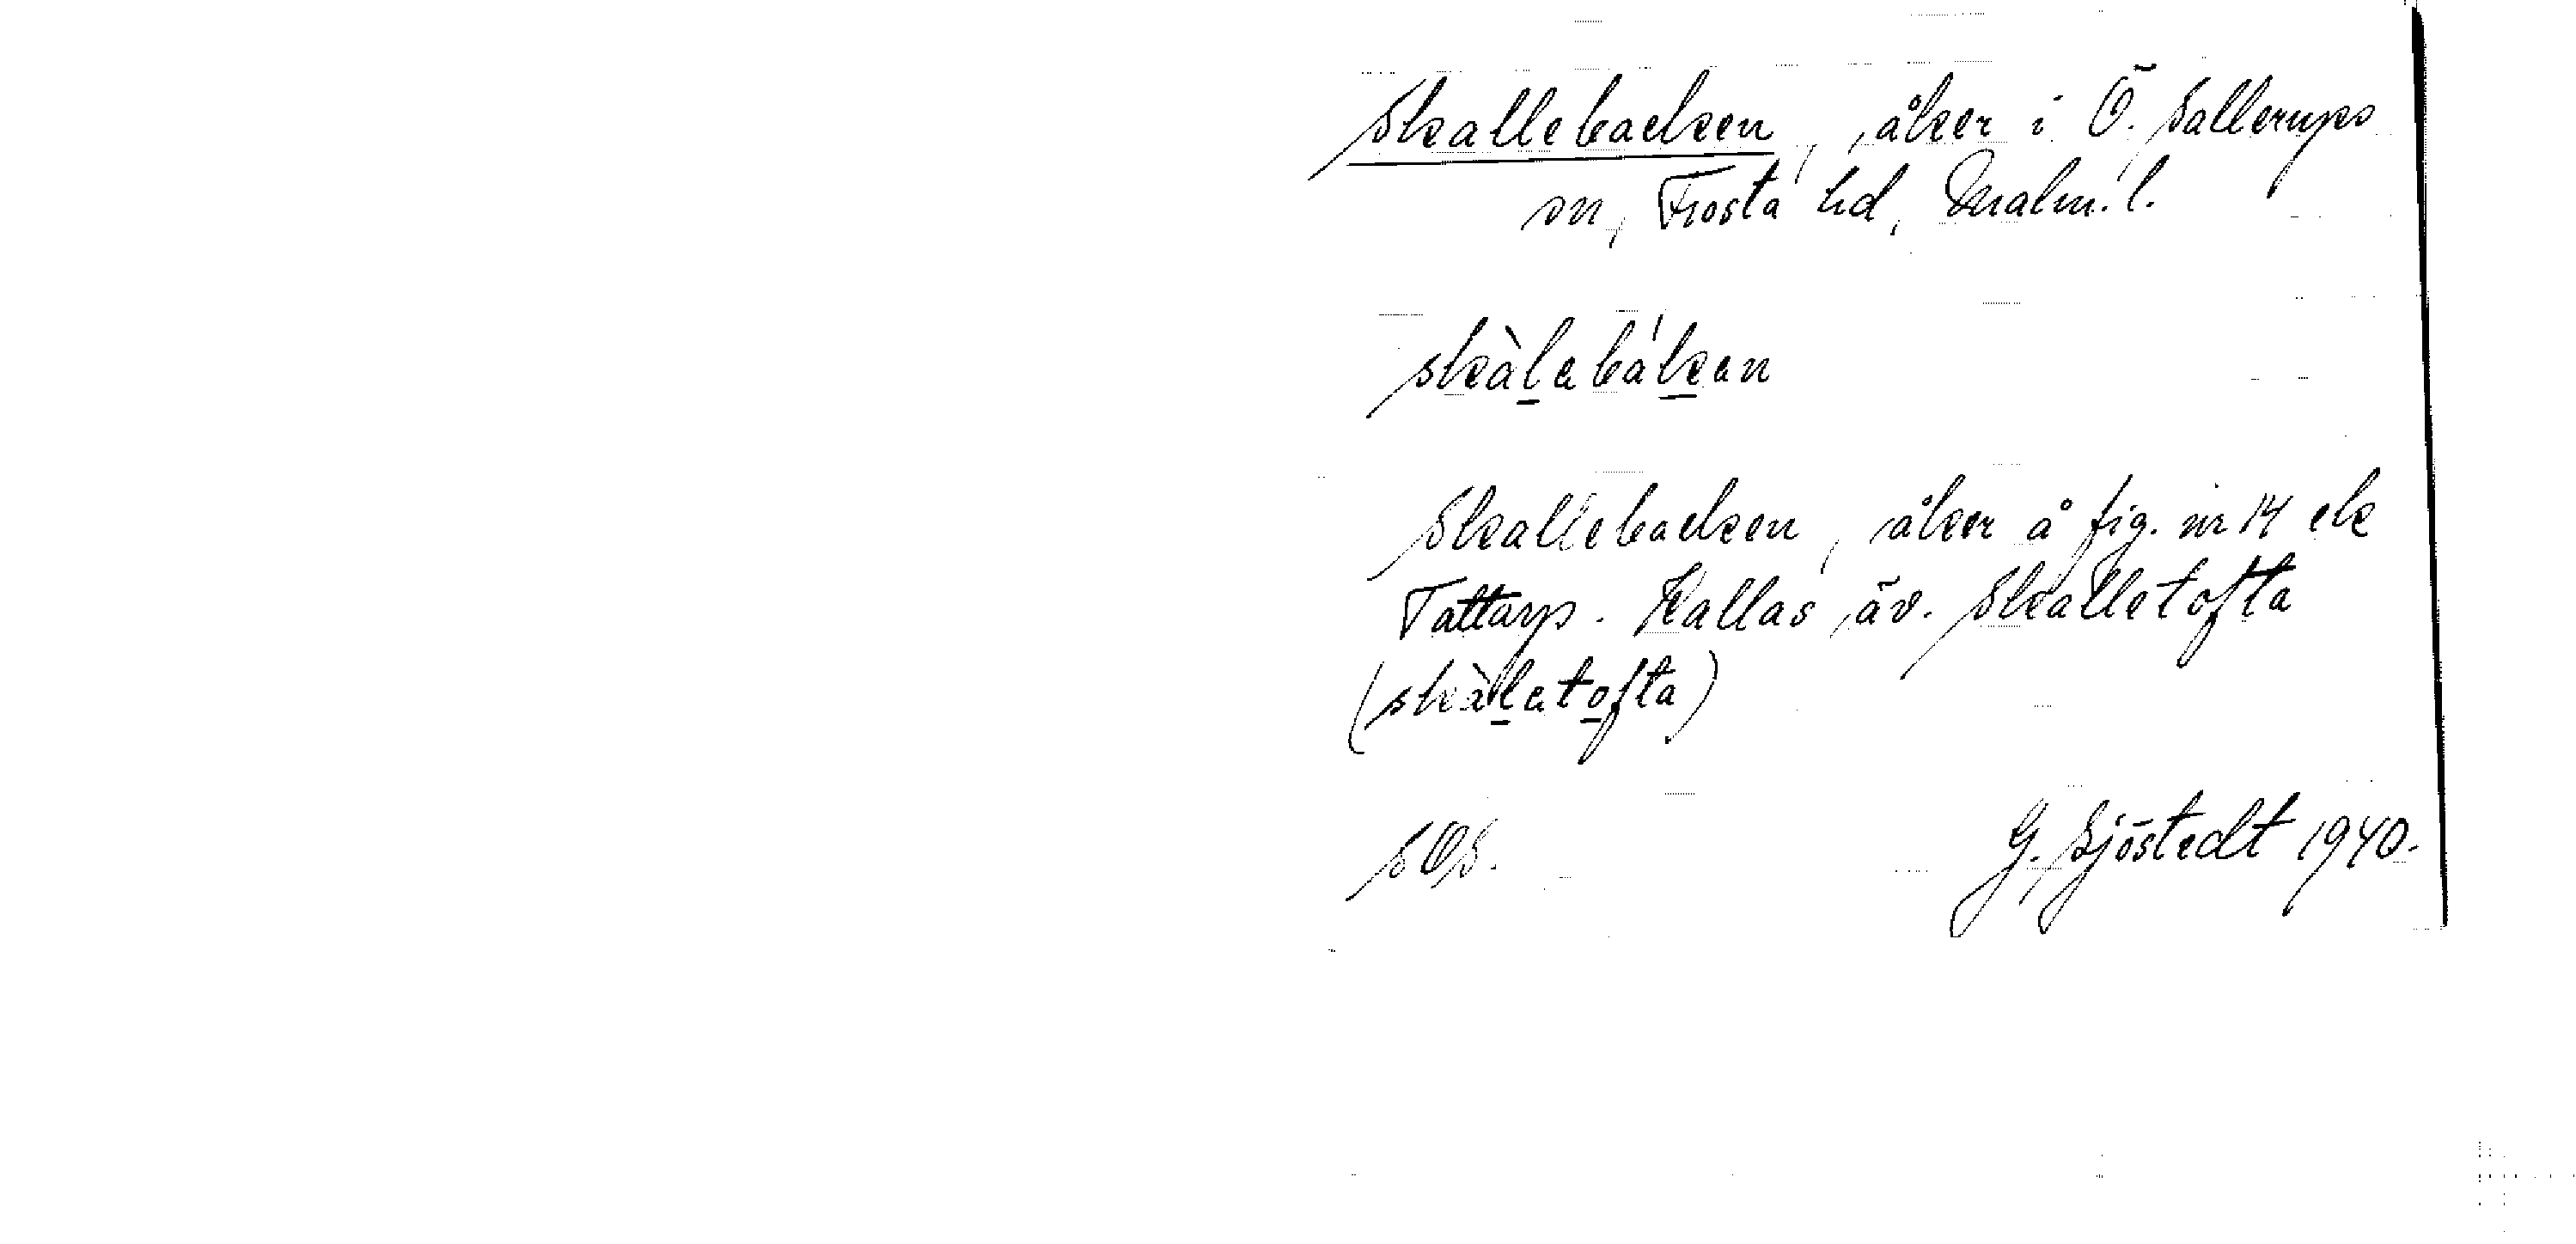 Skallebacken, åker i Ö. Sallerups
sn, Frosta hd, Malm. l.
skàlebáken
Skallebacken, åker å fig. nr 14 ek
Tattarp. Kallas äv. Skalletofta
(skàletofta)
SOS.
G. Sjöstedt 1940.